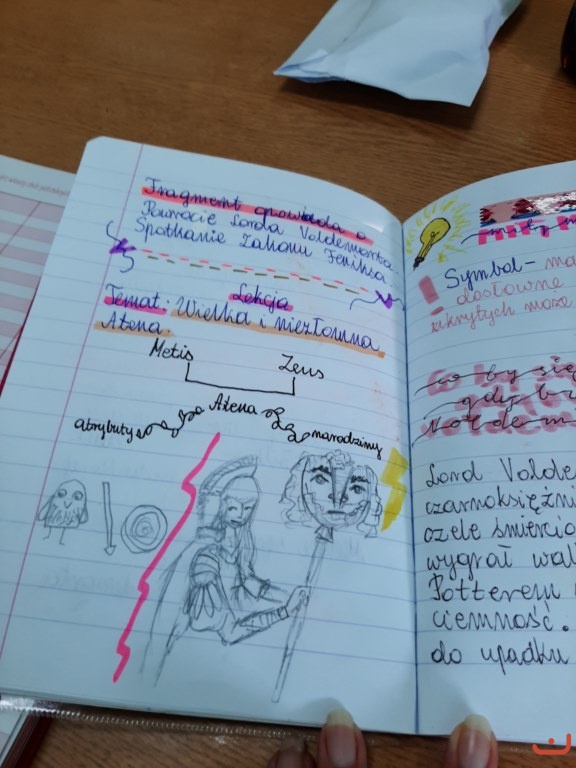 Fragment opowiada o
Powrocie Lorda Voldemorta
Spotkanie Zakonu Feniksa
Lekcja
Temat: Wielka i niezłomna
Atena.
Metis Zeus
Atena
atrybuty narodziny
Symbol- ma
dosłowne
ukrytych może
co by się
gdyby
Voldem
Lord Volde
czarnoksiężni
czele śmierci
wygrał wal
Potterem
ciemność.
do upadku